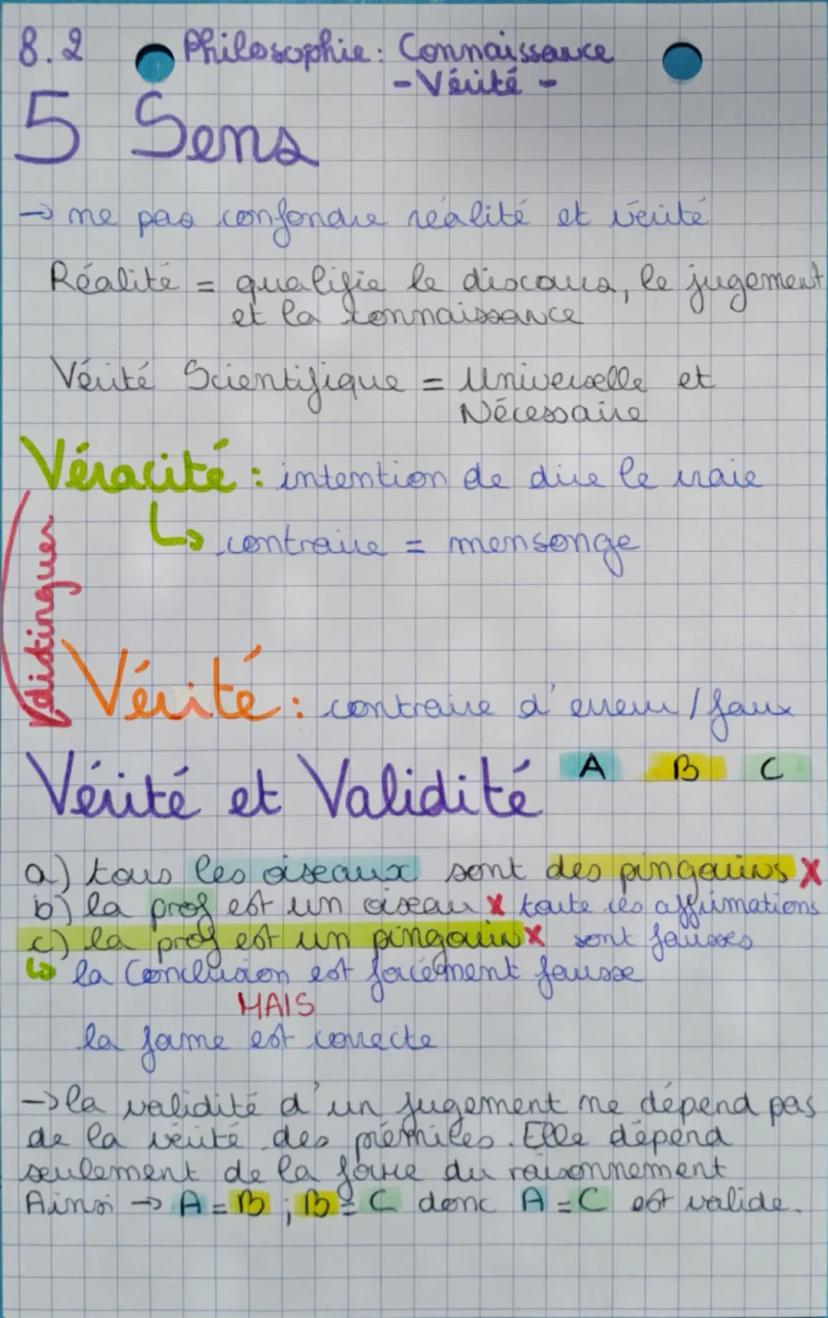 8.2 Philosophie : Connaissance
- Vérité -
5 Sens
→ ne pas confondre réalité et vérité
Réalité = qualifie le discours, le jugement
et la connaissance
Vérité Scientifique = Universelle et
Nécessaire
Véracité : intention de dire le vraie
↳ contraire = mensonge
distinguer
Vérité : contraire d'erreur / faux
Vérité et Validité A B C
a) tous les oiseaux sont des pingouins X
b) la prof est un oiseau X toute les affirmations
c) la prof est un pingouin X sont fausses
↳ la Conclusion est forcément fausse
MAIS
la forme est correcte
→ la validité d'un jugement ne dépend pas
de la vérité des prémices. Elle dépend
seulement de la force du raisonnement
Ainsi → A = B ; B = C donc A = C est valide.